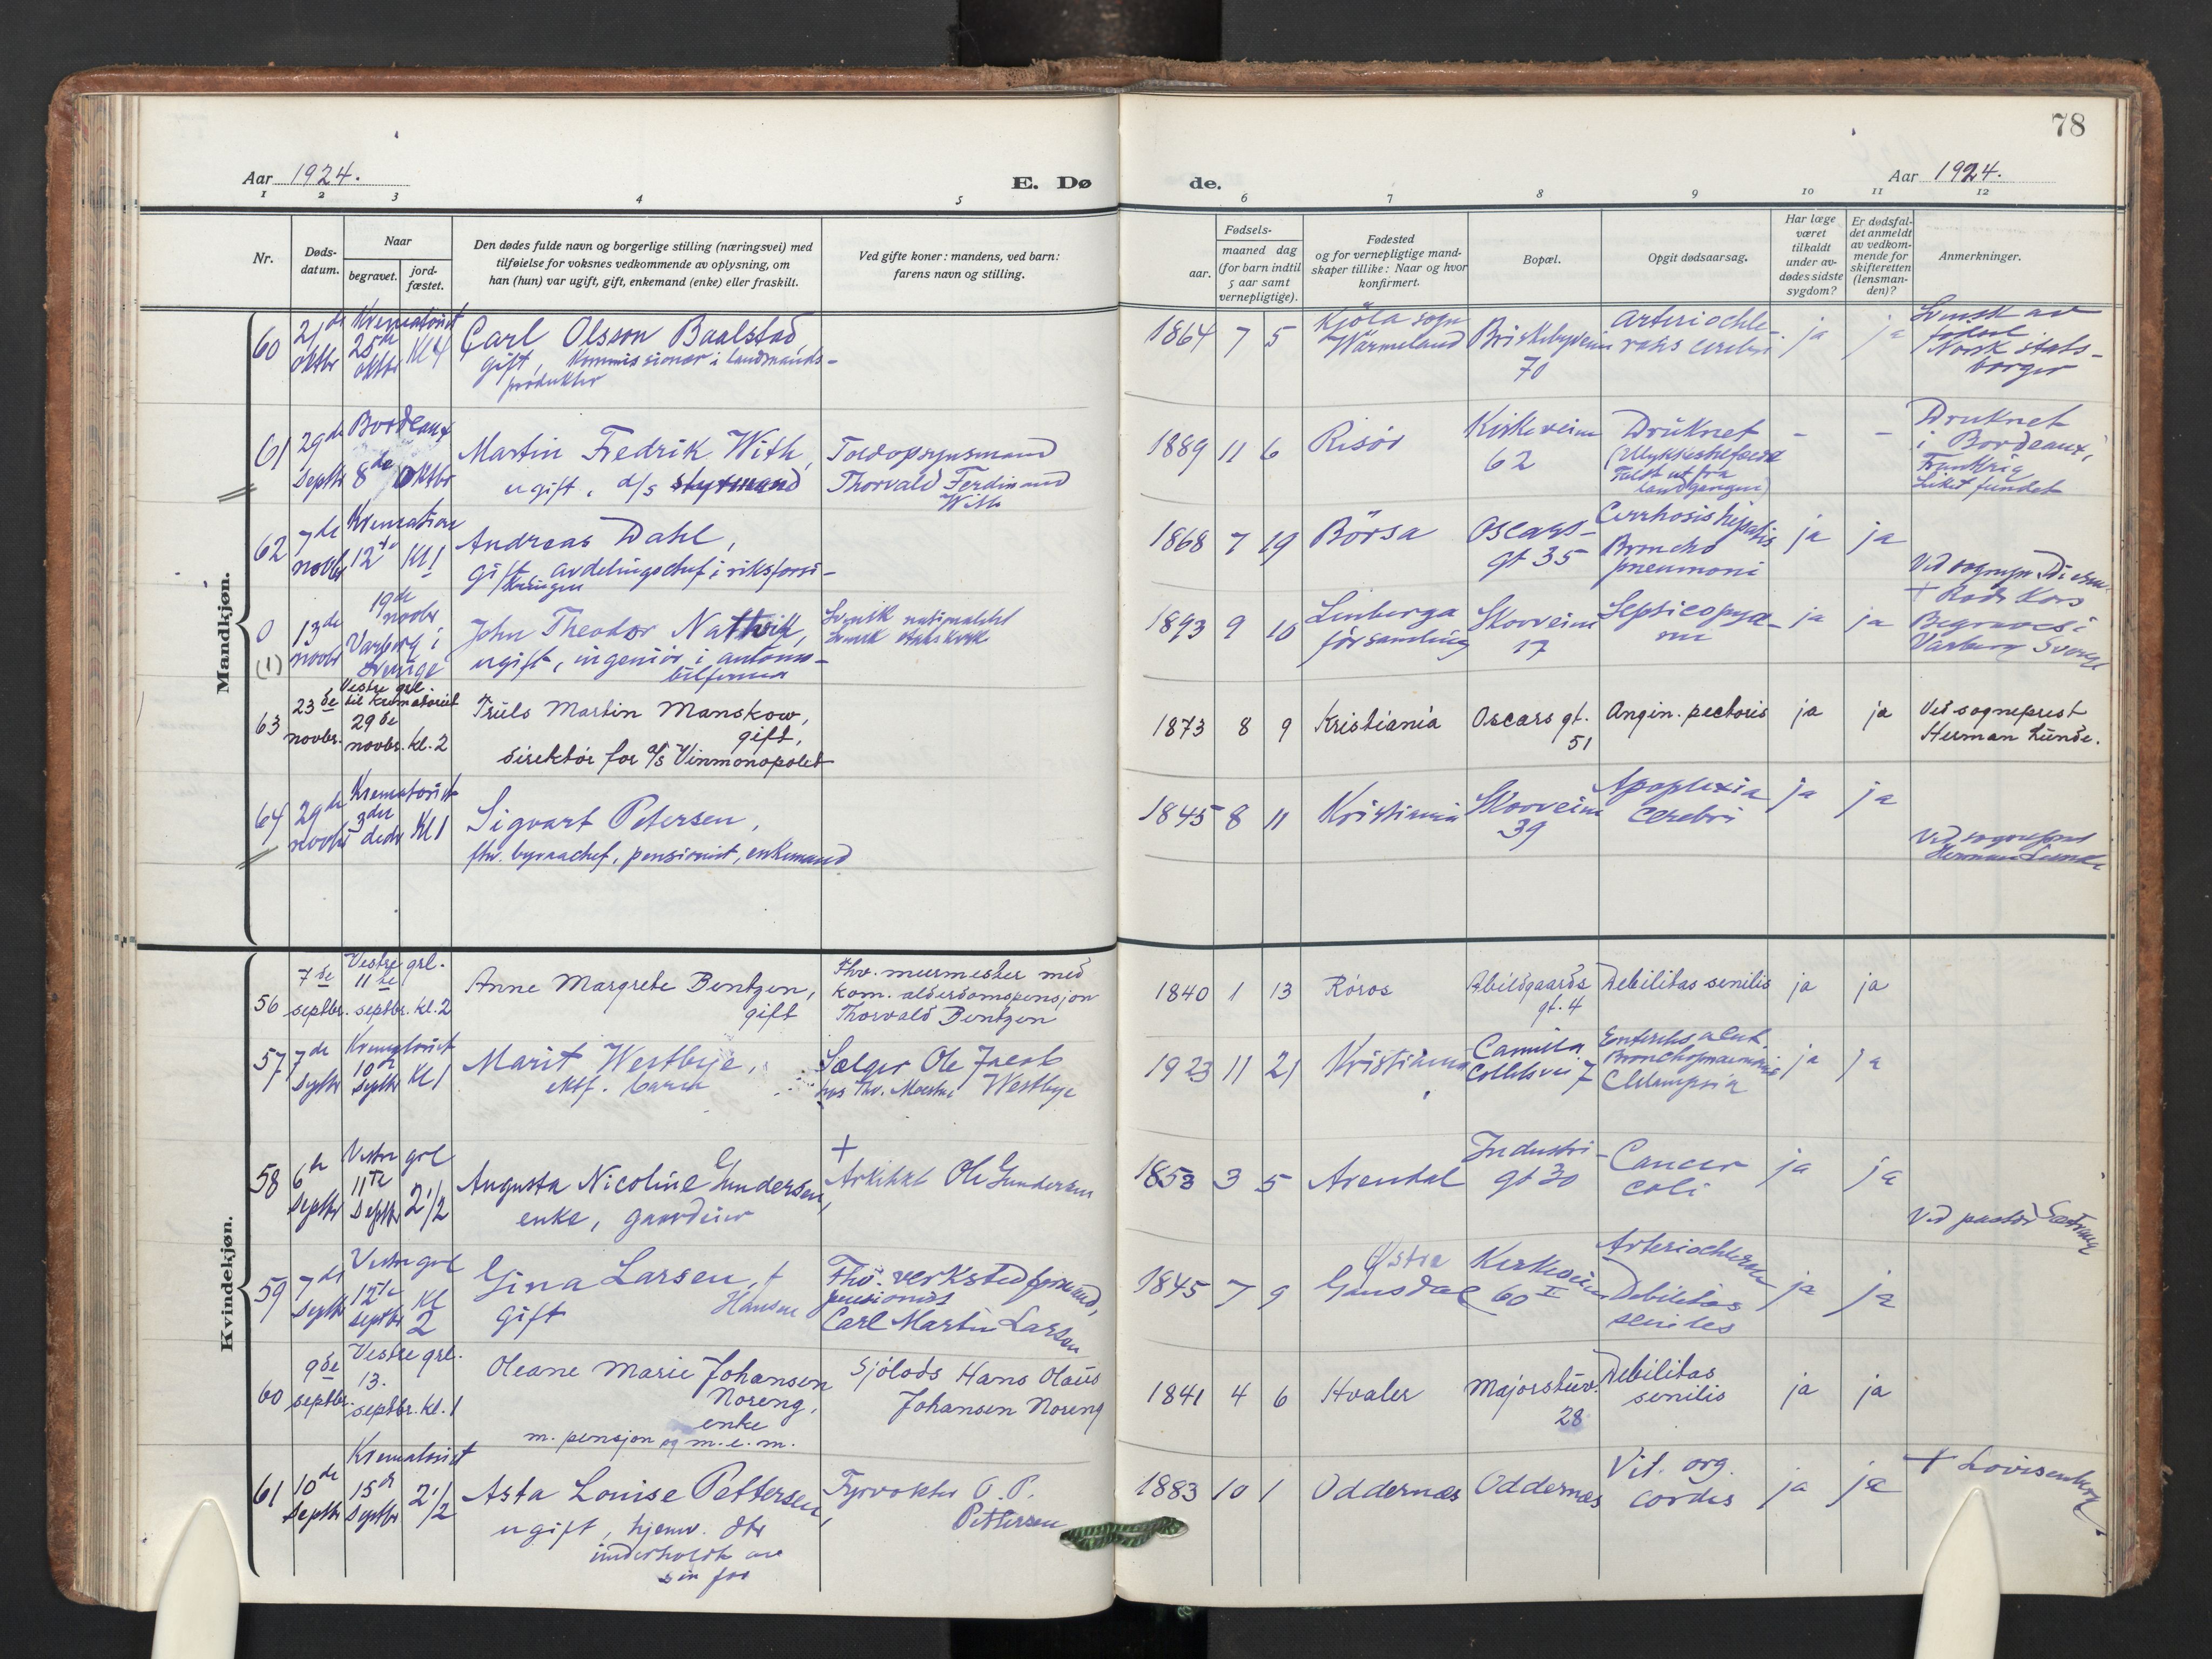 78
Aar 1924.
E. Dø
de.
Aar 1924.
1 2 3 4 5 6 7 8 9 10 11 12
Nr.
Døds-
datum.
Naar
begravet.
jord-
fæstet.
Den dødes fulde navn og borgerlige stilling (næringsvei) med
tilføielse for voksnes vedkommende av oplysning, om
han (hun) var ugift, gift, enkemand (enke) eller fraskilt.
Ved gifte koner: mandens, ved barn:
farens navn og stilling.
Fødsels-
aar.
maaned dag
(for barn indtil
5 aar samt
vernepligtige).
Fødested
og for vernepligtige mand-
skaper tillike: Naar og hvor
konfirmert.
Bopæl.
Opgit dødsaarsag.
Har læge
været
tilkaldt
under av-
dødes sidste
sygdom?
Er dødsfal-
det anmeldt
av vedkom-
mende for
skifteretten
(lensman-
den)?
Anmerkninger.
Mandkjøn.
60
21de
oktbr
Krematoriet
25de
oktbr
Kl 4
Carl Olsson Baalstad
gift, Kommissionær i landmands-
produkter
1864 7 5
Kjöla sogn
Wärmeland
Briskebyveien
70
Arterioschle-
rosis cerebri
ja
ja
Svensk av
fødsel
Norsk stats-
borger
61
29de
Septbr
Bordeaux
8de oktbr
Martin Fredrik With,
ugift, d/s styrmand
Toldopsynsmand
Thorvald Ferdinand
With
1889 11 6
Risör
Kirkeveien
62
Druknet
(Ulykkestilfælde
Faldt ut fra
landgangen)
-
-
Druknet
i Bordeaux,
Frankrig
Liket fundet
62
7de
novbr
Kremation
12te
Kl 1
Andreas Dahl,
gift, avdelingschef i riksforsi-
kringen
1868 7 19
Börsa
Oscars-
gt 35
Cirrhosis hepatis
Broncho
pneumoni
ja
ja
0
(1)
13de
novbr
19de
novbr
Varberg i
Sverige
John Theodor Nathvik,
ugift, ingeniör i automo-
bilfirma
Svensk nationalitet
Svensk statskirke
1893 9 10
Linberga
församling
Skovveien
17
Septicopyæ-
mi
ja
ja
Ved sognepr.
+ Röde Kors
Begraves i
Varberg Sverige
63
23de
novbr.
Vestre grl.
til krematoriet
29de
novbr. kl. 2
Truls Martin Manskow,
gift,
direktör for a/s Vinmonopolet
1873 8 9
Kristiania
Oscars gt.
51
Angin. pectoris
ja
ja
Ved sogneprest
Herman Lunde.
64
29de
novbr
Krematoriet
3die
decbr
Kl 1
Sigvart Petersen,
fhv. byraachef, pensionist, enkemand
1845 8 11
Kristiania
Skovveien
39
Apoplexia
cerebri
ja
ja
Ved sogneprest
Herman Lunde
Kvindekjøn.
56
7de
septbr.
Vestre grl.
11te
septbr. kl. 2
Anne Margrete Bentzen,
gift
Fhv. murmester med
kom. alderdomspensjon
Thorvald Bentzen
1840 1 13
Röros
Abildgaards
gt. 4
Debilitas senilis
ja
ja
57
7de
Septbr
Krematoriet
10de
Septbr
Kl 1
Marit Westbye,
ekt. barn
Sælger Ole Jacob
Westbye
1923 11 21
Kristiania
Camilla
Colletsvei 7
Enteritis acut.
Bronchopneumonia
Eklampsia
ja
ja
58
6te
Septbr
Vestre grl
11te
Septbr
2 1/2
Augusta Nicoline Gundersen,
enke, gaardeier
+
Arkitekt Ole Gundersen
1853 3 5
Arendal
Industri-
gt 30
Cancer
coli
ja
ja
Ved pastor
59
7de
Septbr
Vestre grl
12te
septbr
kl
2
Gina Larsen, f
Hansen
gift
Fhv. verkstedformand,
pensionist
Carl Martin Larsen
1845 7 9
Östre
Gausdal
Kirkeveien
60 I
Arterioschlerose
Debilitas
seniles
ja
ja
60
9de
septbr.
Vestre grl.
13.
septbr. kl. 1
Oleane Marie Johansen
Noreng,
enke
m. pensjon og m.e.m.
Sjölods Hans Olaus
Johansen Noreng
1841 4 6
Hvaler
Majorstuv.
28
Debilitas
senilis
ja
ja
61
10de
Septbr
Krematoriet
15de
Septbr
2 1/2
Asta Louise Pettersen,
ugift, hjemv. dtr
underholdt av
sin far
Fyrvokter O. P.
Pettersen
1883 10 1
Oddernæs
Oddernæs
Vit. org.
cordis
ja
ja
+ Lovisenberg